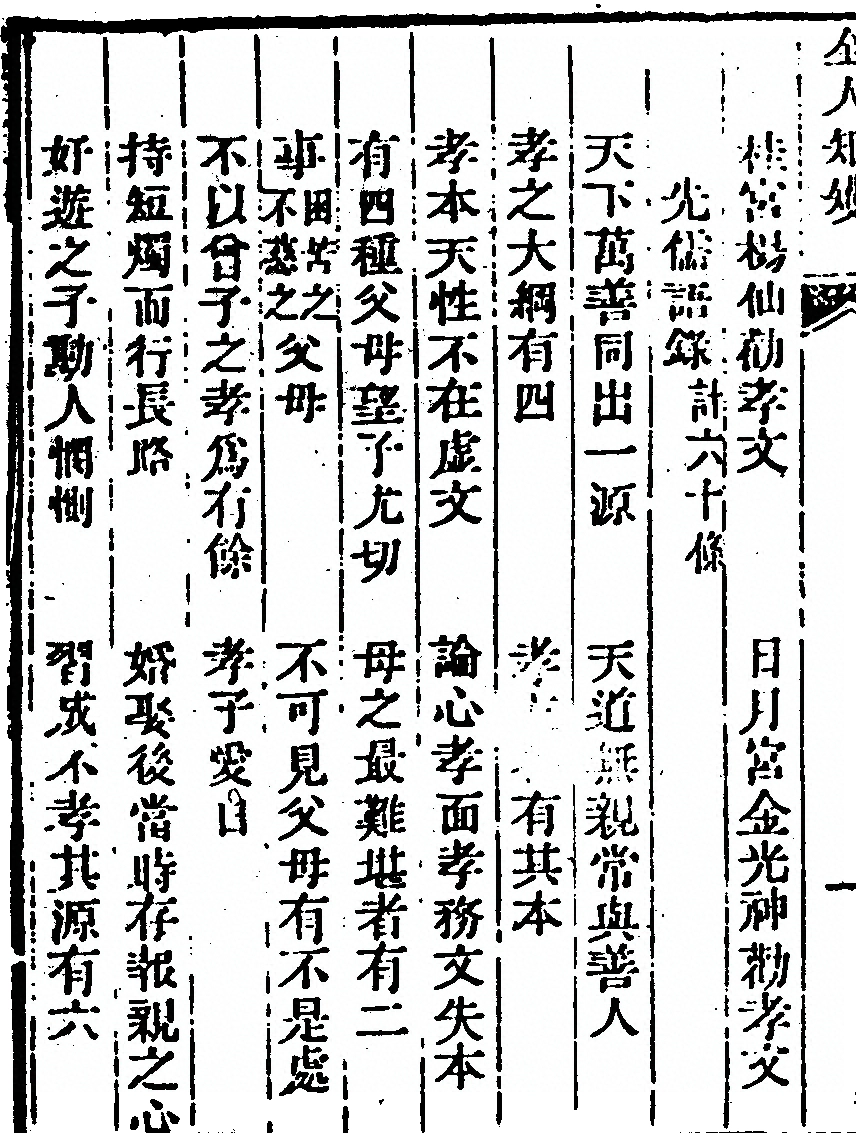 全人矩矱
一
桂宮楊仙勸孝文 日月宮金光神勸孝文
先儒語錄 計六十條
天下萬善同出一源 天道無親常與善人
孝之大綱有四 孝 有其本
孝本天性不在虛文 論心孝面孝務文失本
有四種父母望子尤切 母之最難堪者有二
事困苦之不慈之父母 不可見父母有不是處
不以曾子之孝爲有餘 孝子愛日
持短燭而行長路 婚娶後當時存報親之心
好遊之子動人惆惻 習成不孝其源有六